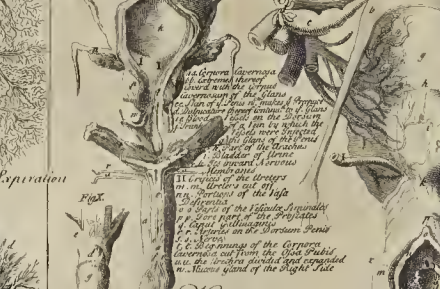 aa. Corpora Cavernosa
bb. Extremes thereof
coverd with the Corpus
Cavernosum of the Glans
cc. Skin of y Penis w.ch makes y Prepuce
d. Duplicature thereof Continu'd to y Glans
Vessels on the Dorsum
of a Vein by which the
Vessels were Injected
g. the Glans of the Penis
Part of the Urachus
i. Bladder of Urine
its inward Nervous
Membrane
ll. Orifices of the Ureters
m.m. Ureters cut off
nn. Portions of the Vasa
Deferentia
o o Parts of the Vesiculæ Seminales
p p. Fore part of the Prostates
q. Caput Gallinaginis
r r. Arteries on the Dorsum Penis
s. s. Nerves
t. t. Beginnings of the Corpora
Cavernosa cut from the Ossa Pubis
u.u. the Urethra divided and expanded
w. Mucus gland of the Right Side
Expiration
Fig X.